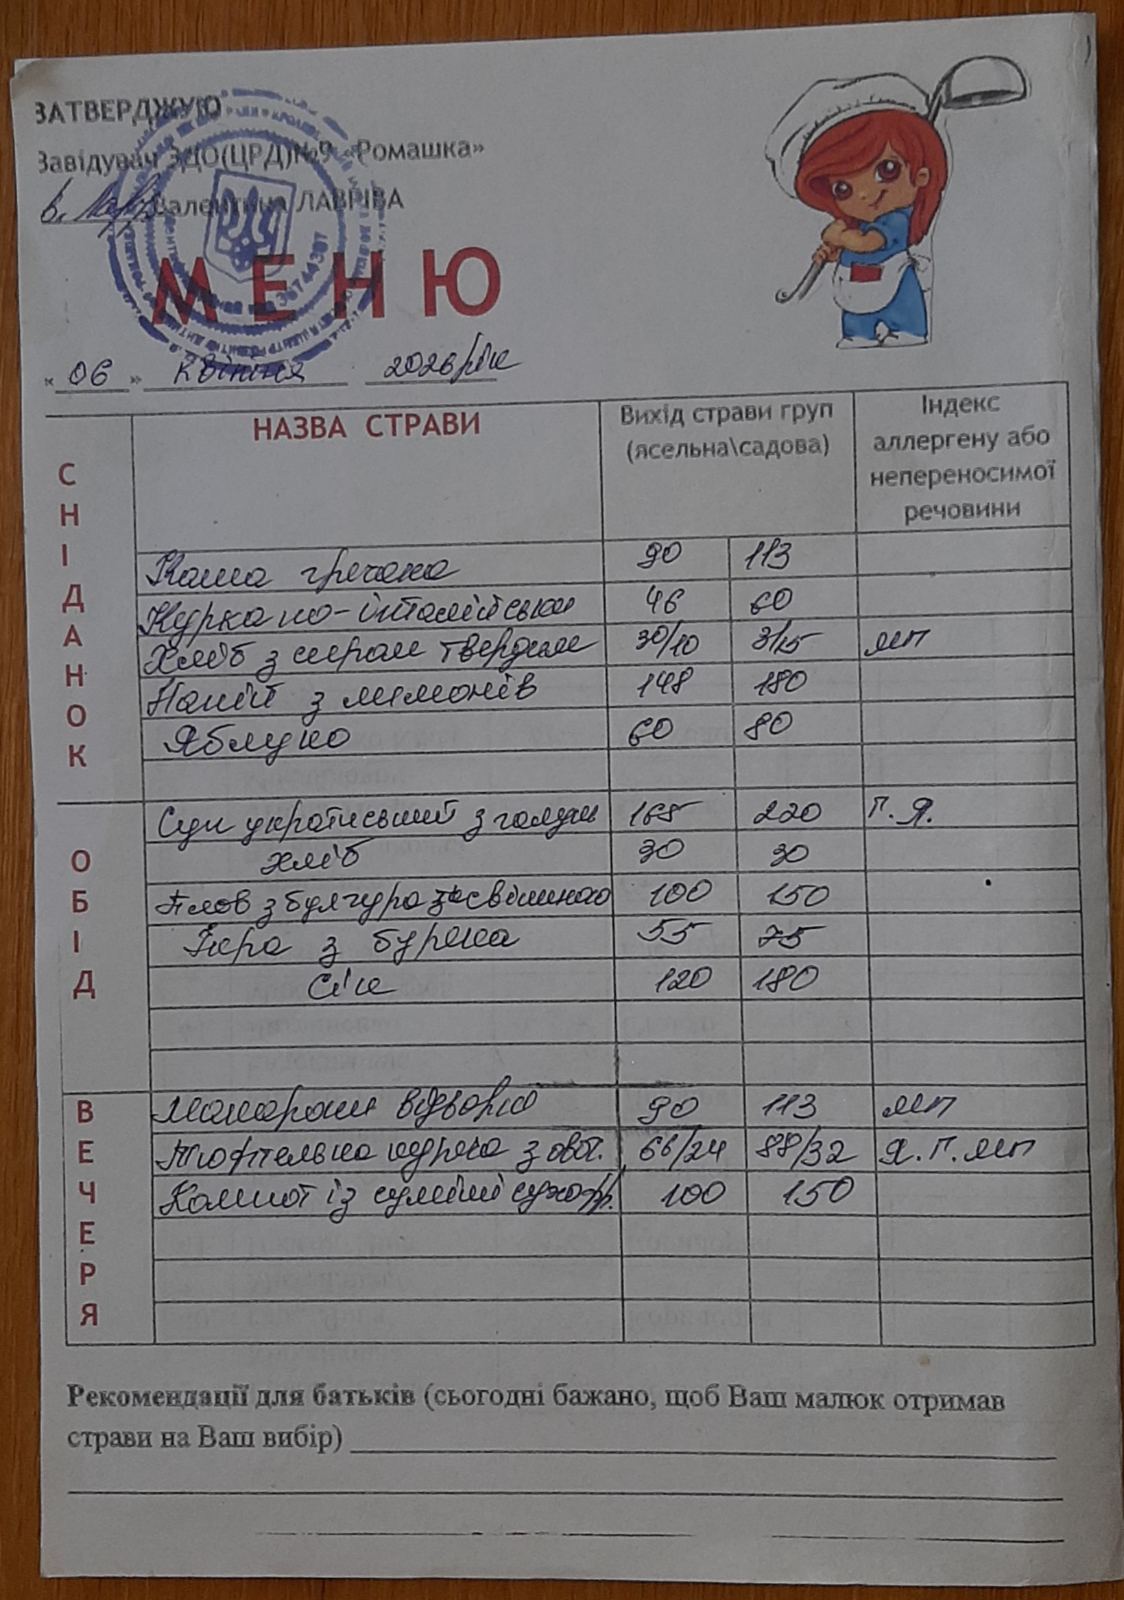 ЗАТВЕРДЖУЮ
Завідувач ЗДО(ЦРД)№9 «Ромашка»
Валентина ЛАВРІВА
МЕНЮ
« 06 » квітня 2026 рік
НАЗВА СТРАВИ Вихід страви груп (ясельна\садова) Індекс аллергену або непереносимої речовини
СНІДАНОК
Каша гречана 90 113
Курка по-італійськи 46 60
Хліб з сиром твердим 30/10 3/15 мп
Напій з лимонів 148 180
Яблуко 60 80
ОБІД
Суп український з галушк 165 220 Г.Я.
Хліб 30 30
Плов з булгура 100 150
Ікра з буряка 55 75
Сік 120 180
ВЕЧЕРЯ
Макарони відварні 90 113 мп
куряча з овоч. 66/24 88/32 Я.Г.мп
Компот із суміші сухофр. 100 150
Рекомендації для батьків (сьогодні бажано, щоб Ваш малюк отримав
страви на Ваш вибір)